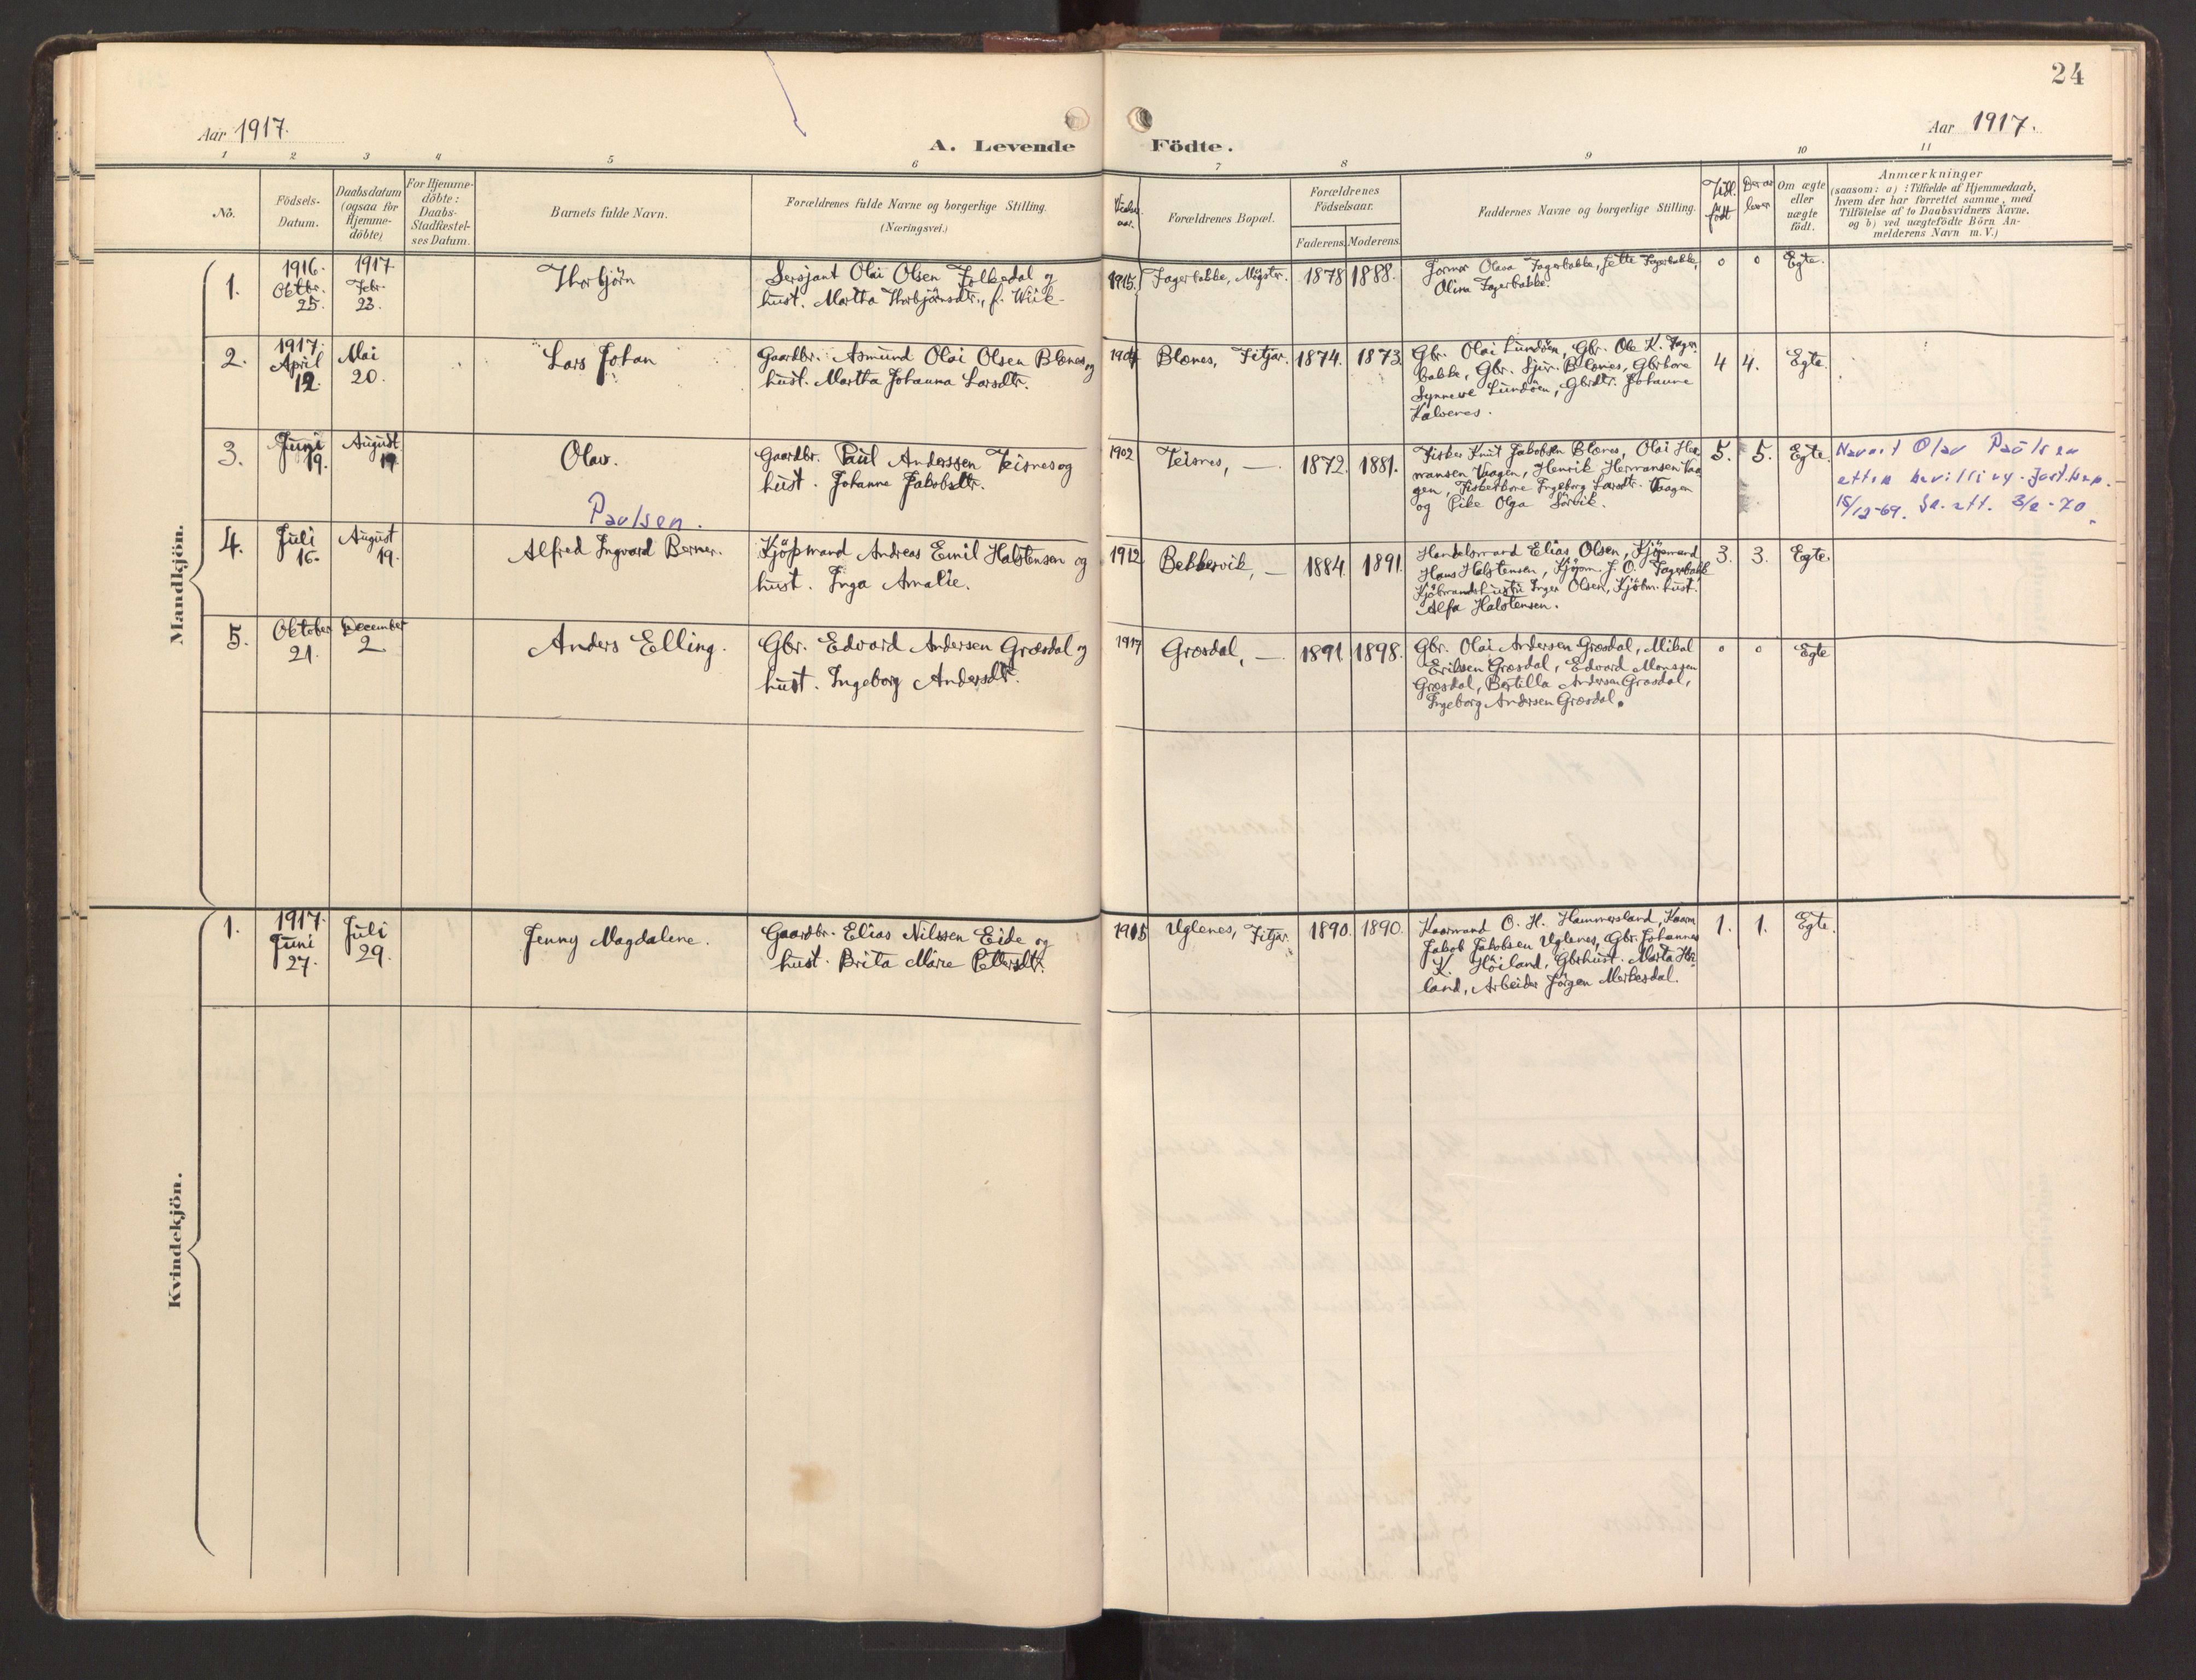 24
Aar 1917.
A. Levende Födte.
Aar 1917.
1 2 3 4 5 6 7 8 9 10 11
No.
Födsels-
Datum.
Daabsdatum
(ogsaa for
Hjemme-
döbte)
For Hjemme-
döbte:
Daabs-
Stadfæstel-
ses Datum.
Barnets fulde Navn.
Forældrenes fulde Navne og borgerlige Stilling.
(Næringsvei.)
Forældrenes Bopæl.
Forældrenes
Födselsaar.
Faderens. Moderens.
Faddernes Navne og borgerlige Stilling.
Till.
født
Derav
lever
Om ægte
eller
uægte
födt.
Anmærkninger
(saasom: a) : Tilfælde af Hjemmedaab,
hvem der har forrettet samme, med
Tilföielse af to Daabsvidners Navne,
og b) ved uægtefödte Börn An-
melderens Navn m. V.)
Mandkjön.
1.
1916.
Oktbr.
25.
1917
Febr.
23.
Thorbjörn
Sersjant Olai Olsen Folkedal og
hust. Martha Thorbjörnsdtr., f. Wiik
1915.
Fagerbakke, Mögstr.
1878
1888.
Jormor Olava Fagerbakke, Jette Fagerbakke,
Olina Fagerbakke.
o
o
Egte.
2.
1917.
April
12.
Mai
20.
Lars Johan
Gaardbr. Asmund Olai Olsen Blænes og
hust. Martha Johanna Larsdtr.
1904
Blænes, Fitjar.
1874.
1873
Gbr. Olai Lundöen, Gbr. Ole K. Fager-
bakke, Gbr. Sjur Blænes, Gbrkone
Synneve Lundöen, Gbrdtr. Johanne
Kalvenes.
4
4.
Egte.
3.
Juni
19.
August
19
Olav.
Paulsen.
Gaardbr. Paul Anderssen Teisnes og
hust. Johanne Jakobsdtr.
1902
Teisnes, —
1872.
1881.
Fisker Knut Jakobsen Blænes, Olai Her-
mansen Vaagen, Henrik Hermansen Vaa
gen, Fiskerkone Ingeborg Larsdtr. Vaagen
og Pike Olga Sörvik.
5.
5.
Egte.
Navnet Olav Paulsen
etter bevilling. Just.dep.
15/12-69. Se. att. 3/2-70.
4.
Juli
16.
August
19.
Alfred Ingvard Berner.
Kjöpmand Andreas Emil Halstensen og
hust. Inga Amalie.
1912
Bekkervik, —
1884.
1891
Handelsmand Elias Olsen, Kjöpmand
Hans Halstensen, Kjöpm. J. O. Fagerbakk
Kjöbmandshustru Inger Olsen, Kjöbm. hust.
Alfa Halstensen.
3.
3.
Egte.
5.
Oktober
21.
December
2.
Anders Elling.
Gbr. Edvard Andersen Græsdal og
hust. Ingeborg Andersdtr.
1917
Græsdal, —
1891
1898.
Gbr. Olai Andersen Græsdal, Mikal
Eriksen Græsdal, Edvard Monssen
Græsdal, Bertilla Andersen Græsdal,
Ingeborg Andersen Græsdal.
o
o
Egte
Kvindekjön.
1.
1917.
Juni
27.
Juli
29.
Jenny Magdalene.
Gaardbr. Elias Nilssen Eide og
hust. Brita Marie Pettersdtr.
1915
Uglenes, Fitjar.
1890.
1890.
Kaarmand O. H. Hammersland, Kaarm
Jakob Jakobsen Uglenes, Gbr. Johannes
K. Höiland, Gbrhust. Marta Höi-
land, Arbeider Jörgen Merkesdal.
1.
1.
Egte.